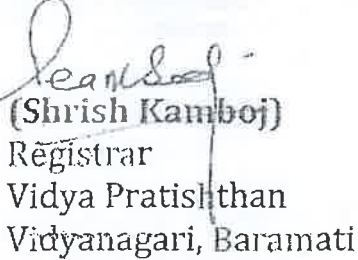 (Shrish Kamboj)
Registrar
Vidya Pratishthan
Vidyanagari, Baramati